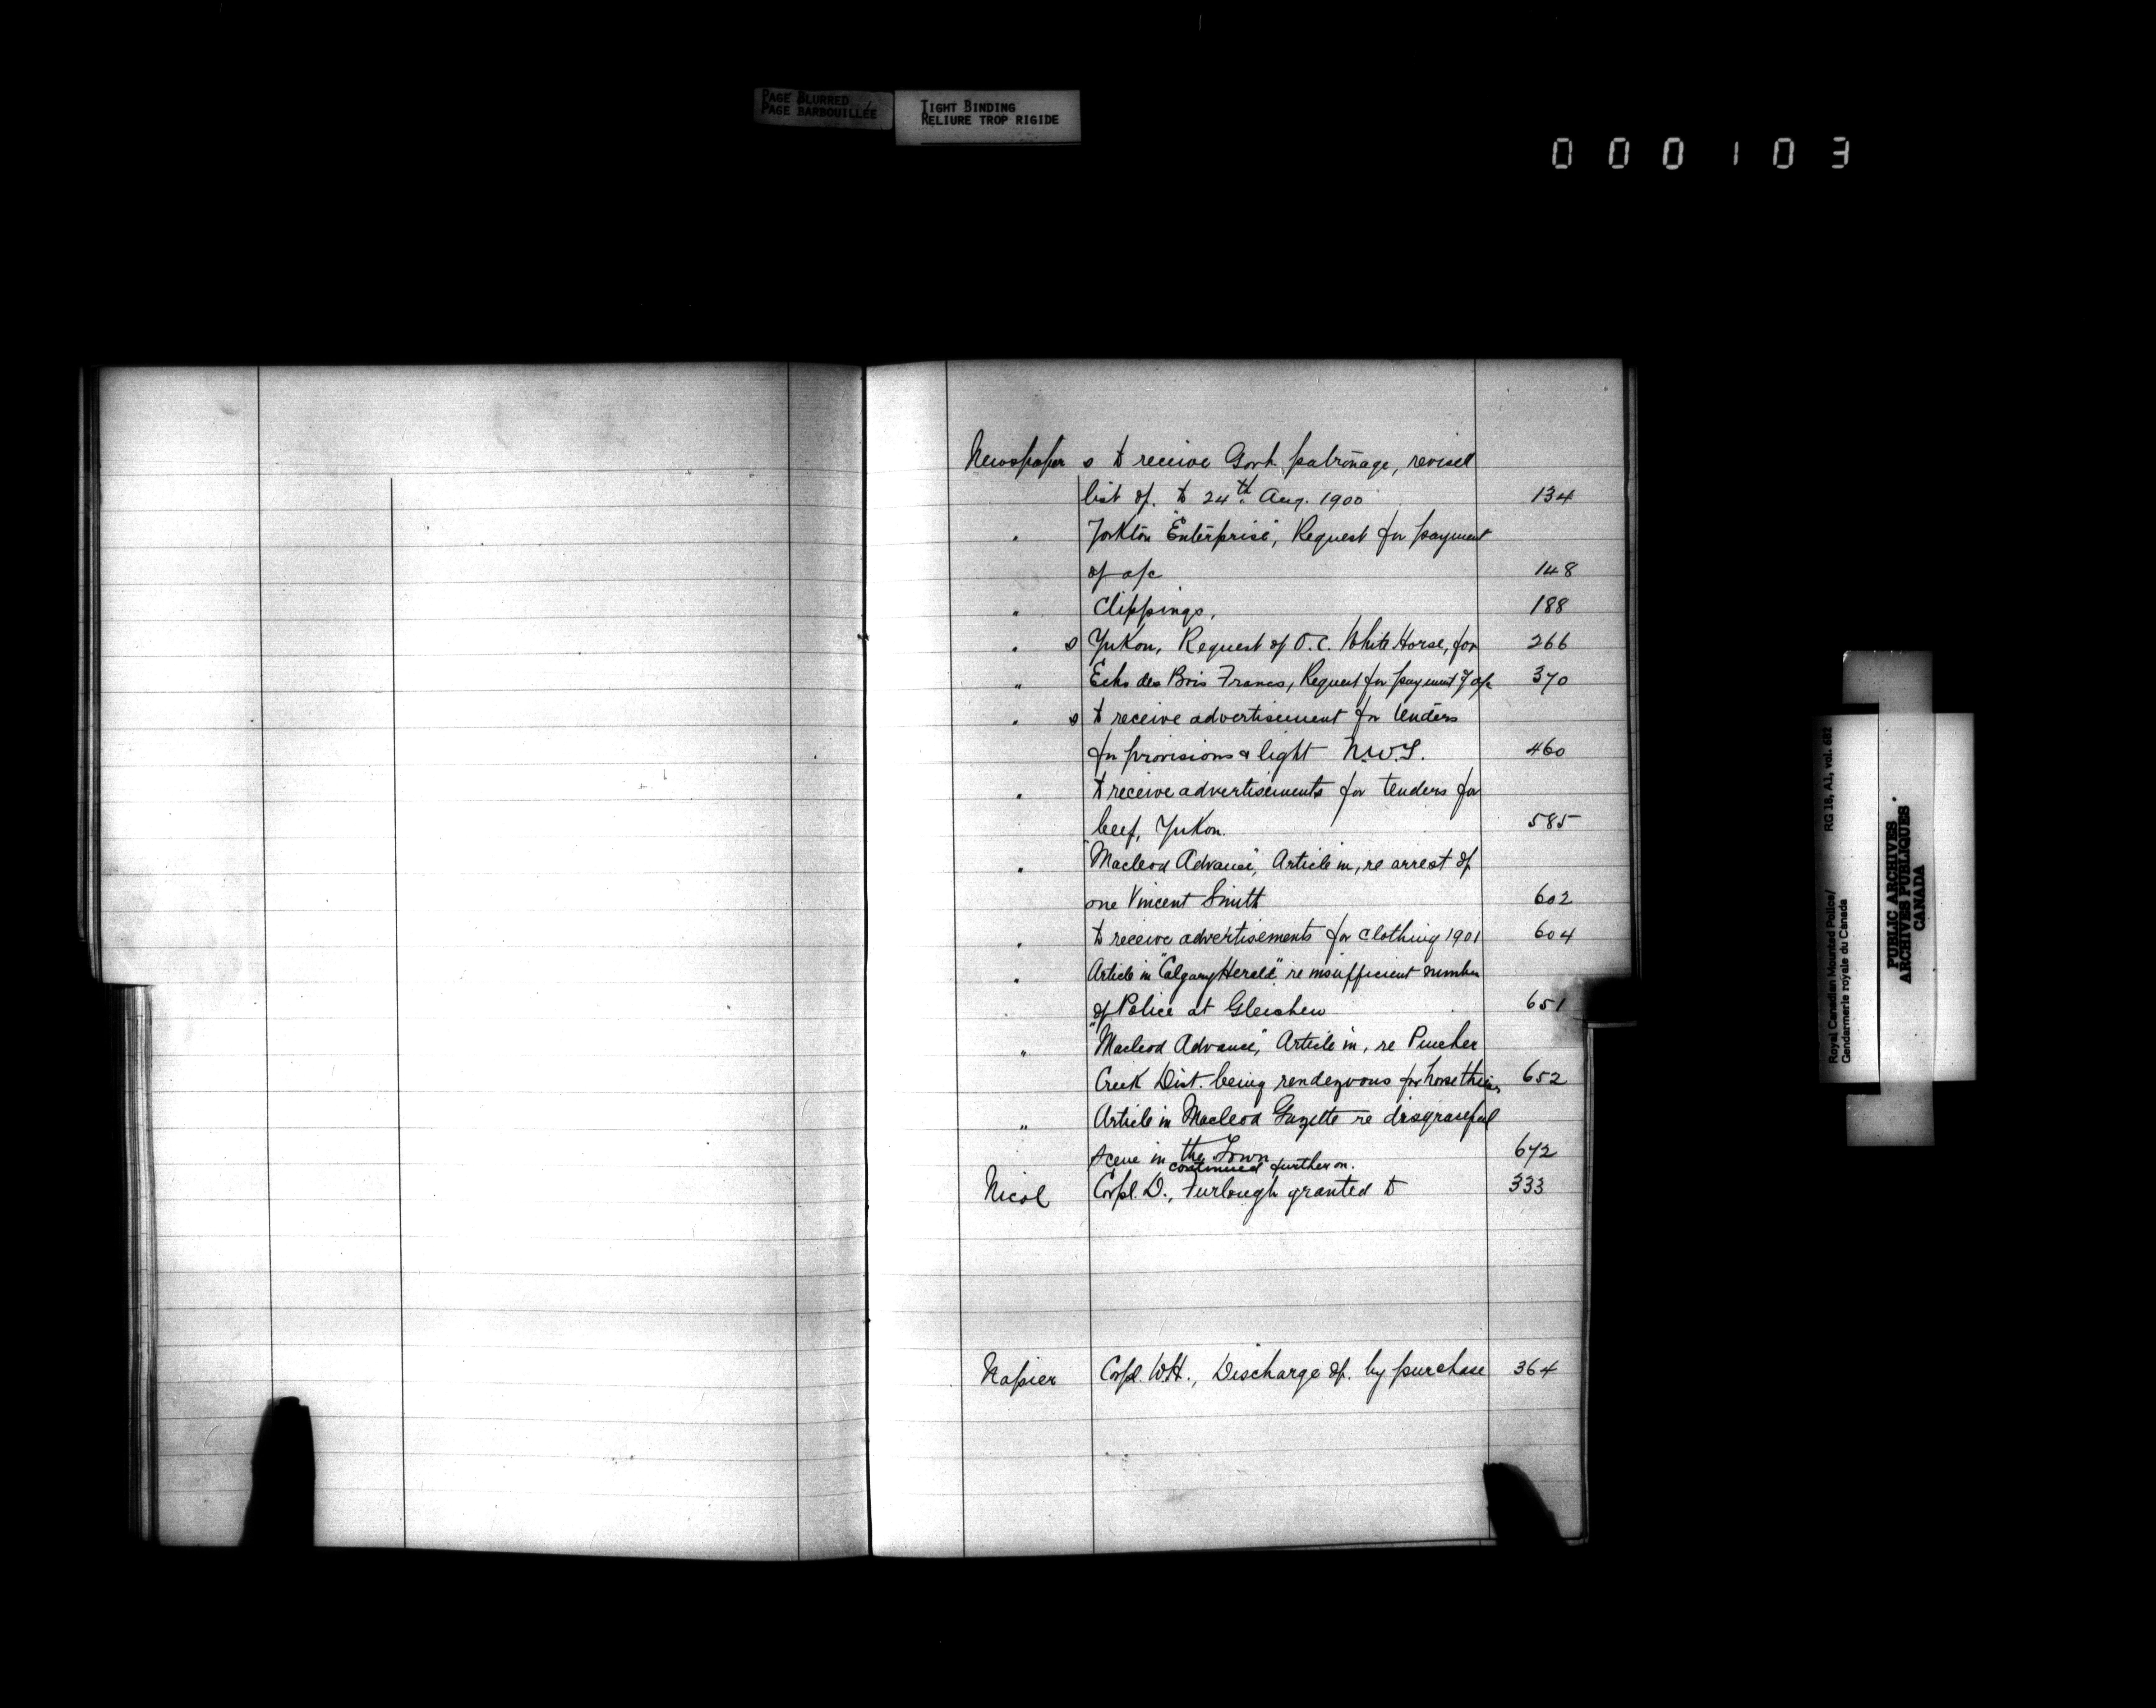 PAGE BLURRED
PAGE BARBOUILLÉE
TIGHT BINDING
RELIURE TROP RIGIDE
000103
Newspaper s to receive Govt. patronage, revised
list of. to 24th. Aug. 1900 134
" Yorkton "Enterprise", Request for payment
of a/c 148
" Clippings, 188
" s Yukon, Request of O.C. White Horse, for 266
" Echo des Bois Francs, Request for payment of a/c 370
" s to receive advertisement for tenders
for provisions & light N.W.T. 460
" to receive advertisements for tenders for
beef, Yukon. 585
" "Macleod Advance", Article in, re arrest of
one Vincent Smith 602
" to receive advertisements for clothing 1901 604
" Article in "Calgary Herald" re insufficient number
of Police at Gleichen 651
" "Macleod Advance", Article in, re Pincher
Creek Dist. being rendezvous for horse thieves 652
" Article in Macleod Gazette re disgraceful
scene in the Town 672
continued further on.
Nicol Corpl. D., Furlough granted to 333
Napier Corpl. W.H., Discharge of. by purchase 364
Royal Canadian Mounted Police/ RG 18, A1, vol. 682
Gendarmerie royale du Canada
PUBLIC ARCHIVES
ARCHIVES PUBLIQUES
CANADA